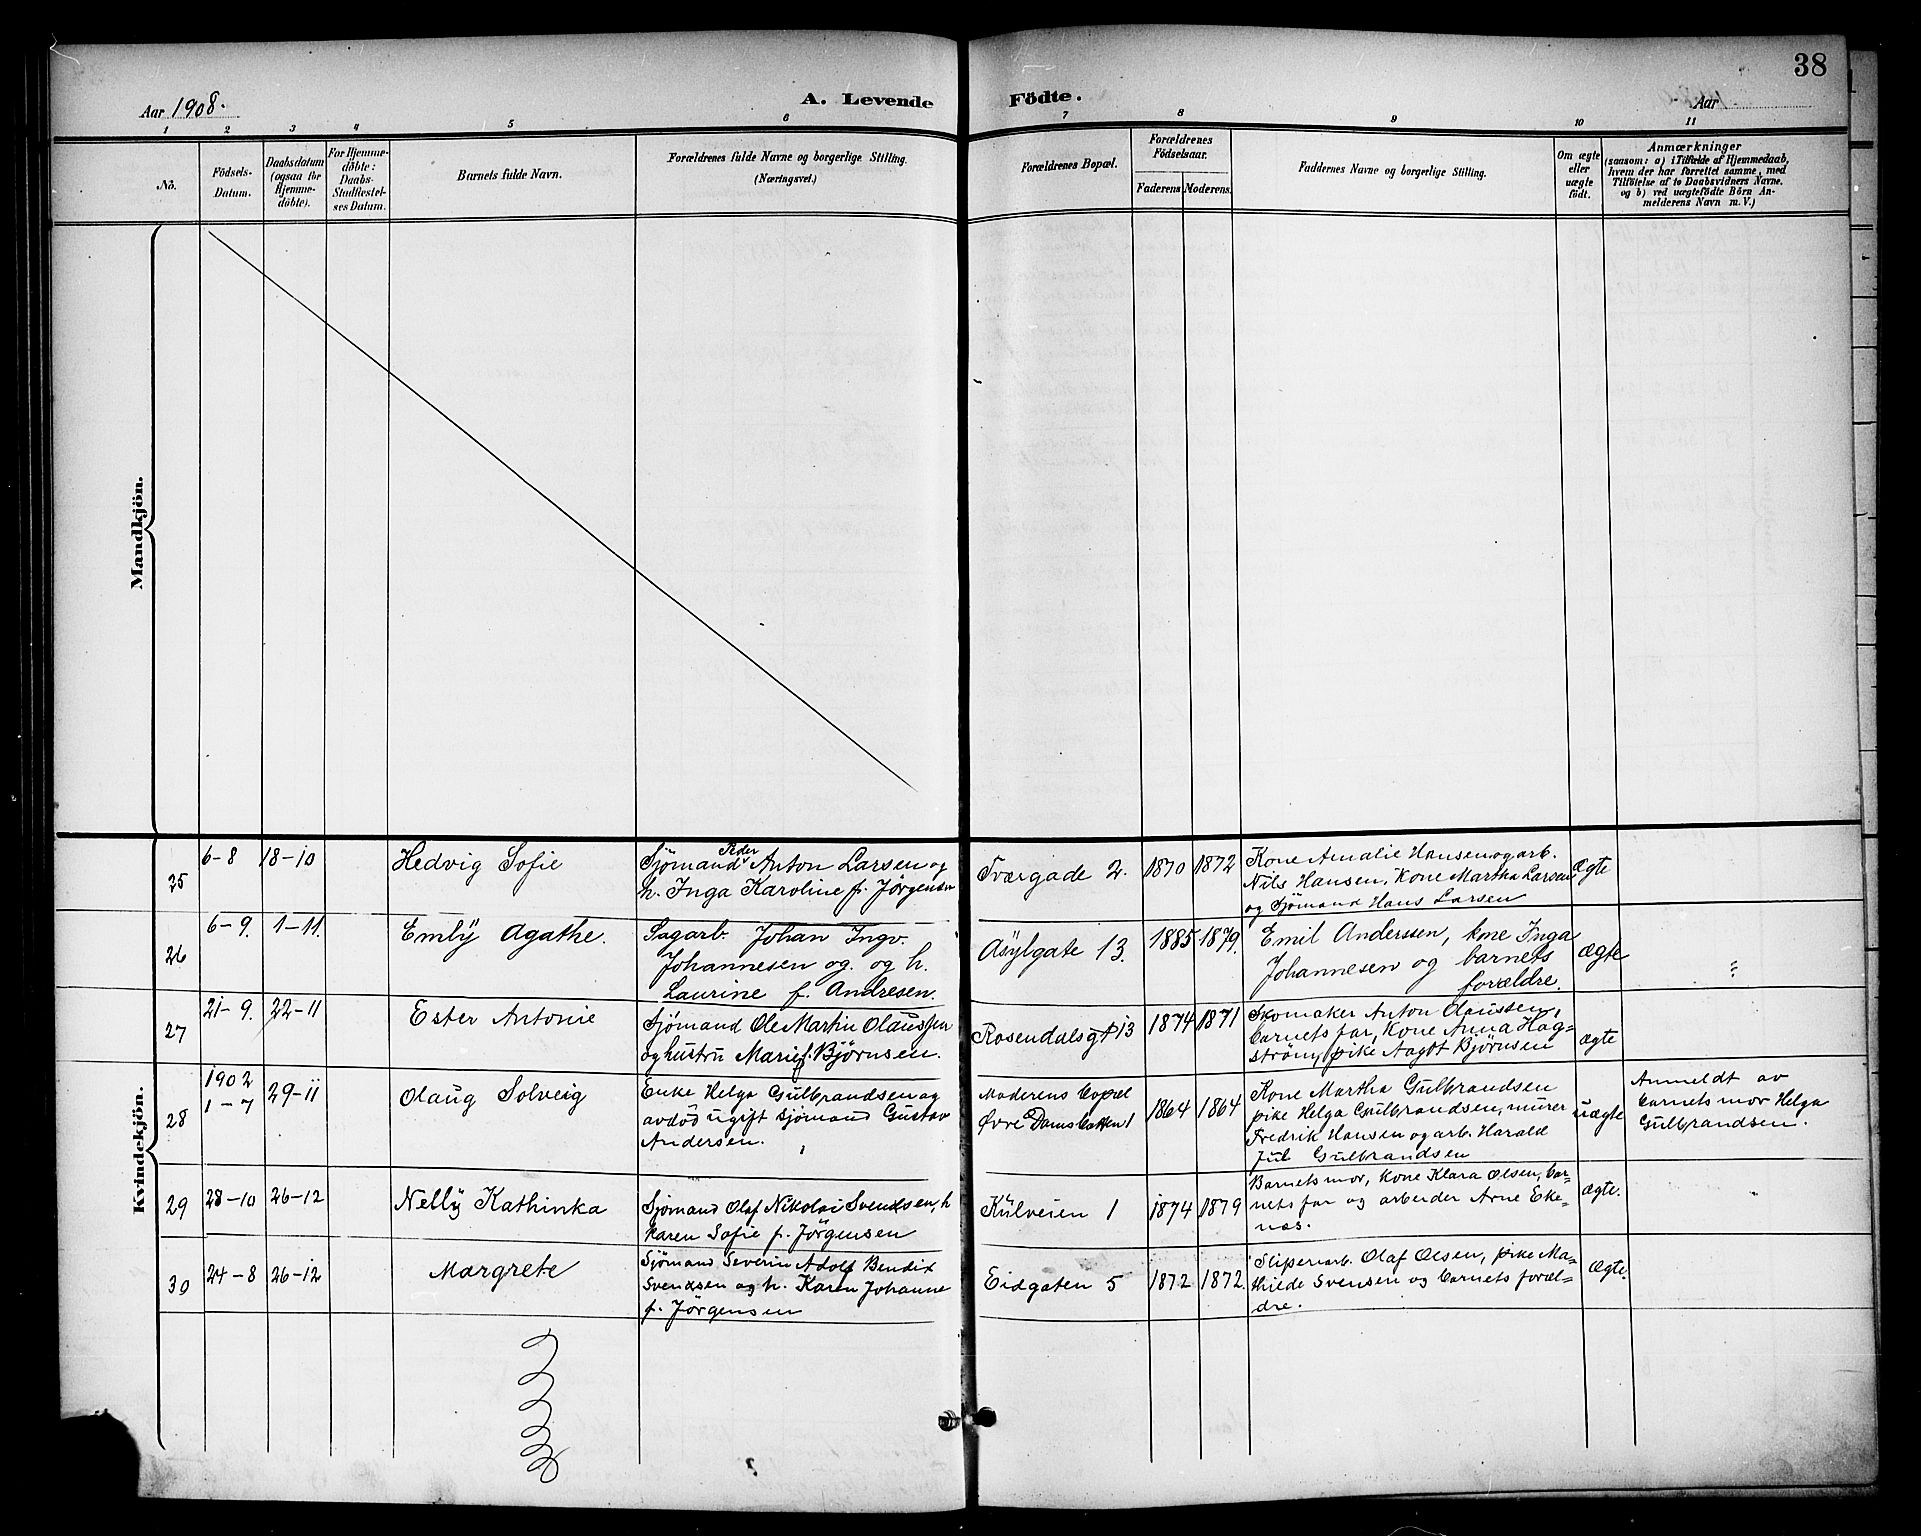 38
Aar 1908.
A. Levende Födte.
Aar
1 2 3 4 5 6 7 8 9 10 11
No.
Födsels-
Datum.
Daabsdatum
(ogsaa for
Hjemme-
döbte).
For Hjemme-
döbte:
Daabs-
Stadfæstel-
ses Datum.
Barnets fulde Navn.
Forældrenes fulde Navne og borgerlige Stilling.
(Næringsvei.)
Forældrenes Bopæl.
Forældrenes
Födselsaar.
Faderens
Moderens.
Faddernes Navne og borgerlige Stilling.
Om ægte
eller
uægte
födt.
Anmærkninger
(saasom: a) i Tilfælde af Hjemmedaab,
hvem der har forrettet samme, med
Tilföielse af to Daabsvidners Navne,
og b) ved uægtefödte Börn An-
melderens Navn m. V.)
Mandkjön.
Kvindekjön.
25
6-8
18-10
Hedvig Sofie
Peder
Sjømand Anton Larsen og
h. Inga Karoline f. Jørgensen
Tværgade 2.
1870
1872
Kone Amalie Hansen og arb.
Nils Hansen, Kone Martha Larsen
og Sjømand Hans Larsen
Ægte
26
6-9.
1-11.
Emly Agathe.
Sagarb. Johan Ingv.
Johannesen og. og h.
Laurine f. Andresen.
Asylgate 13.
1885
1879.
Emil Anderssen, kone Inga
Johannesen og barnets
forældre.
ægte
"
27
21-9.
22-11
Ester Antonie
Sjømand Ole Martin Olaussen
og hustru Marie f. Bjørnsen.
Rosendalsgt 13
1874
1871
Skomaker Anton Olaussen,
barnets far, Kone Anna Hag-
strøm, pike Aagot Bjørnsen
ægte
28
1902
1-7
29-11
Olaug Solveig
Enke Helga Gulbrandsen og
avdød ugift sjømand Gustav
Andersen.
Moderens bopæl
Øvre Damsbakken 1
1864
1864
Kone Martha Gulbrandsen
pike Helga Gulbrandsen, murer
Fredrik Hansen og arb. Harald
Jul Gulbrandsen
uægte
Anmeldt av
barnets mor Helga
Gulbrandsen.
29
28-10
26-12
Nelly Kathinka
Sjømand Olaf Nikolai Svendsen, h
Karen Sofie f. Jørgensen
Kulveien 1
1874
1879
Barnets mor, kone Klara Olsen, bar-
nets far og arbeider Arne Eke-
nas.
ægte.
"
30
24-8
26-12
Margrete
Sjømand Severin Adolf Bendix
Svendsen og h. Karen Johanne
f. Jørgensen
Eidgaten 5
1872
1872.
Sliperarb. Olaf Olsen, pike Ma-
thilde Svensen og barnets foræl-
dre.
ægte.